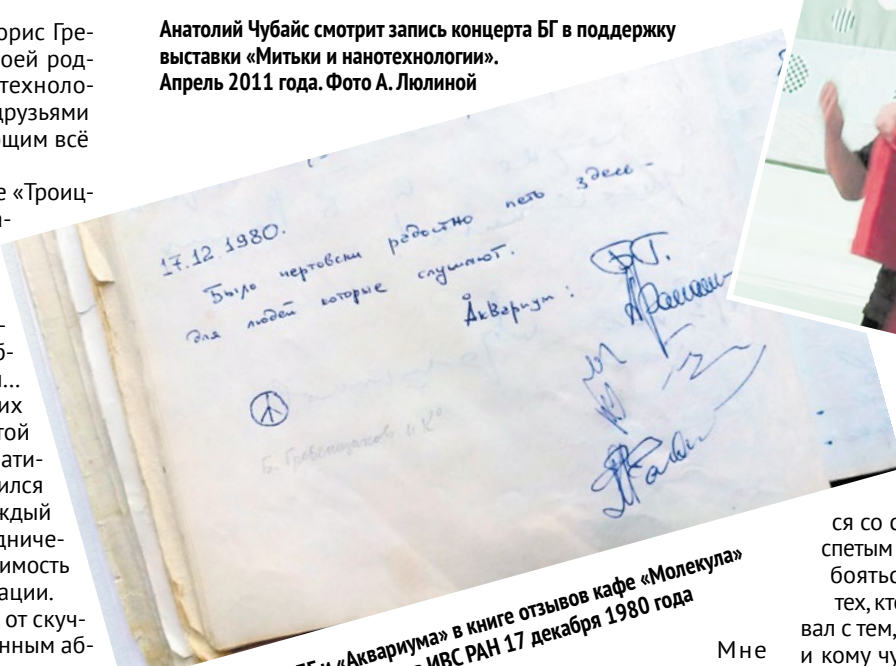 орис Гре-
оей род-
техноло-
друзьями
ющим всё
е «Троиц-
их
той
ати-
ился
ждый
дниче-
имость
ации.
от скуч-
нным аб-
Анатолий Чубайс смотрит запись концерта БГ в поддержку
выставки «Митьки и нанотехнологии».
Апрель 2011 года. Фото А. Люлиной
17.12.1980.
Было чертовски радостно петь здесь -
для людей которые слушают.
Аквариум : БГ.
Б. Гребенщиков и К°
и «Аквариума» в книге отзывов кафе «Молекула»
ИВС РАН 17 декабря 1980 года
ся со с
спетым
боятьс
тех, кто
вал с тем,
Мне и кому чу